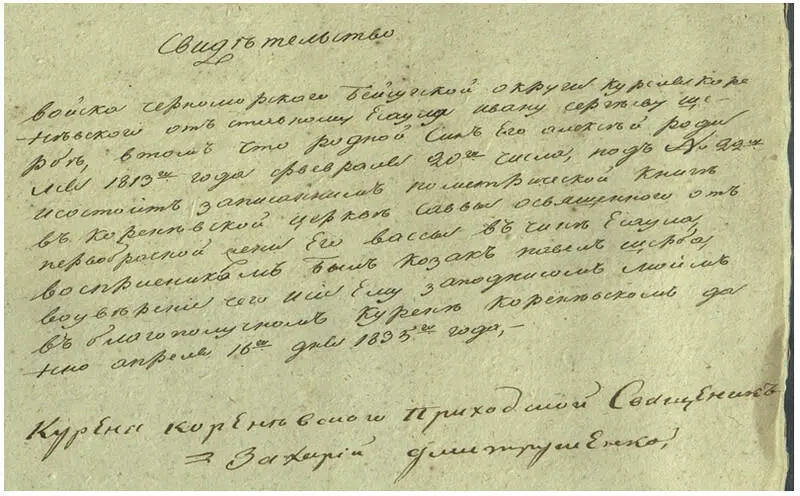 Свидѣтельство
войска черноморского Бейсугской округи куреня коре
нѣвского отъставному Есаулу ивану сергѣеву ще
рбѣ, втомъ что родной Синъ Его алексѣй роди
лся 1813го года февраля 20го числа, подъ №22м
исостоитъ записаннимъ пометрической книгѣ
въ коренѣвской церквѣ Саввы освященного отъ
первобрасной жени Его вассы въ чинѣ Есаула,
восприемникамъ былъ козакъ павелъ щерба,
воувѣрение чего исие Ему заподписомъ моимъ
въ благополучномъ курѣне коренѣвскомъ да
нно апреля 16го дня 1835го года,-
Курѣна коренѣвского приходской Священикъ
Захарій дмитрушенко,